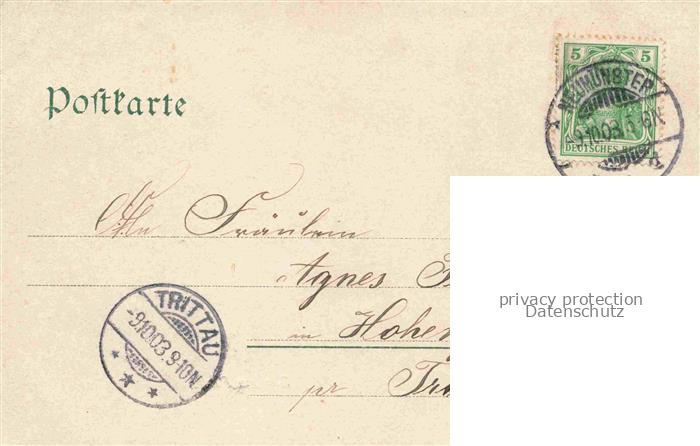 5 5
NEUMÜNSTER
9.10.03.
DEUTSCHES REICH
Postkarte
An Fräulein
Agnes
in Hohen
pr Tri
TRITTAU
-9.10.03.9-10N
privacy protection
Datenschutz